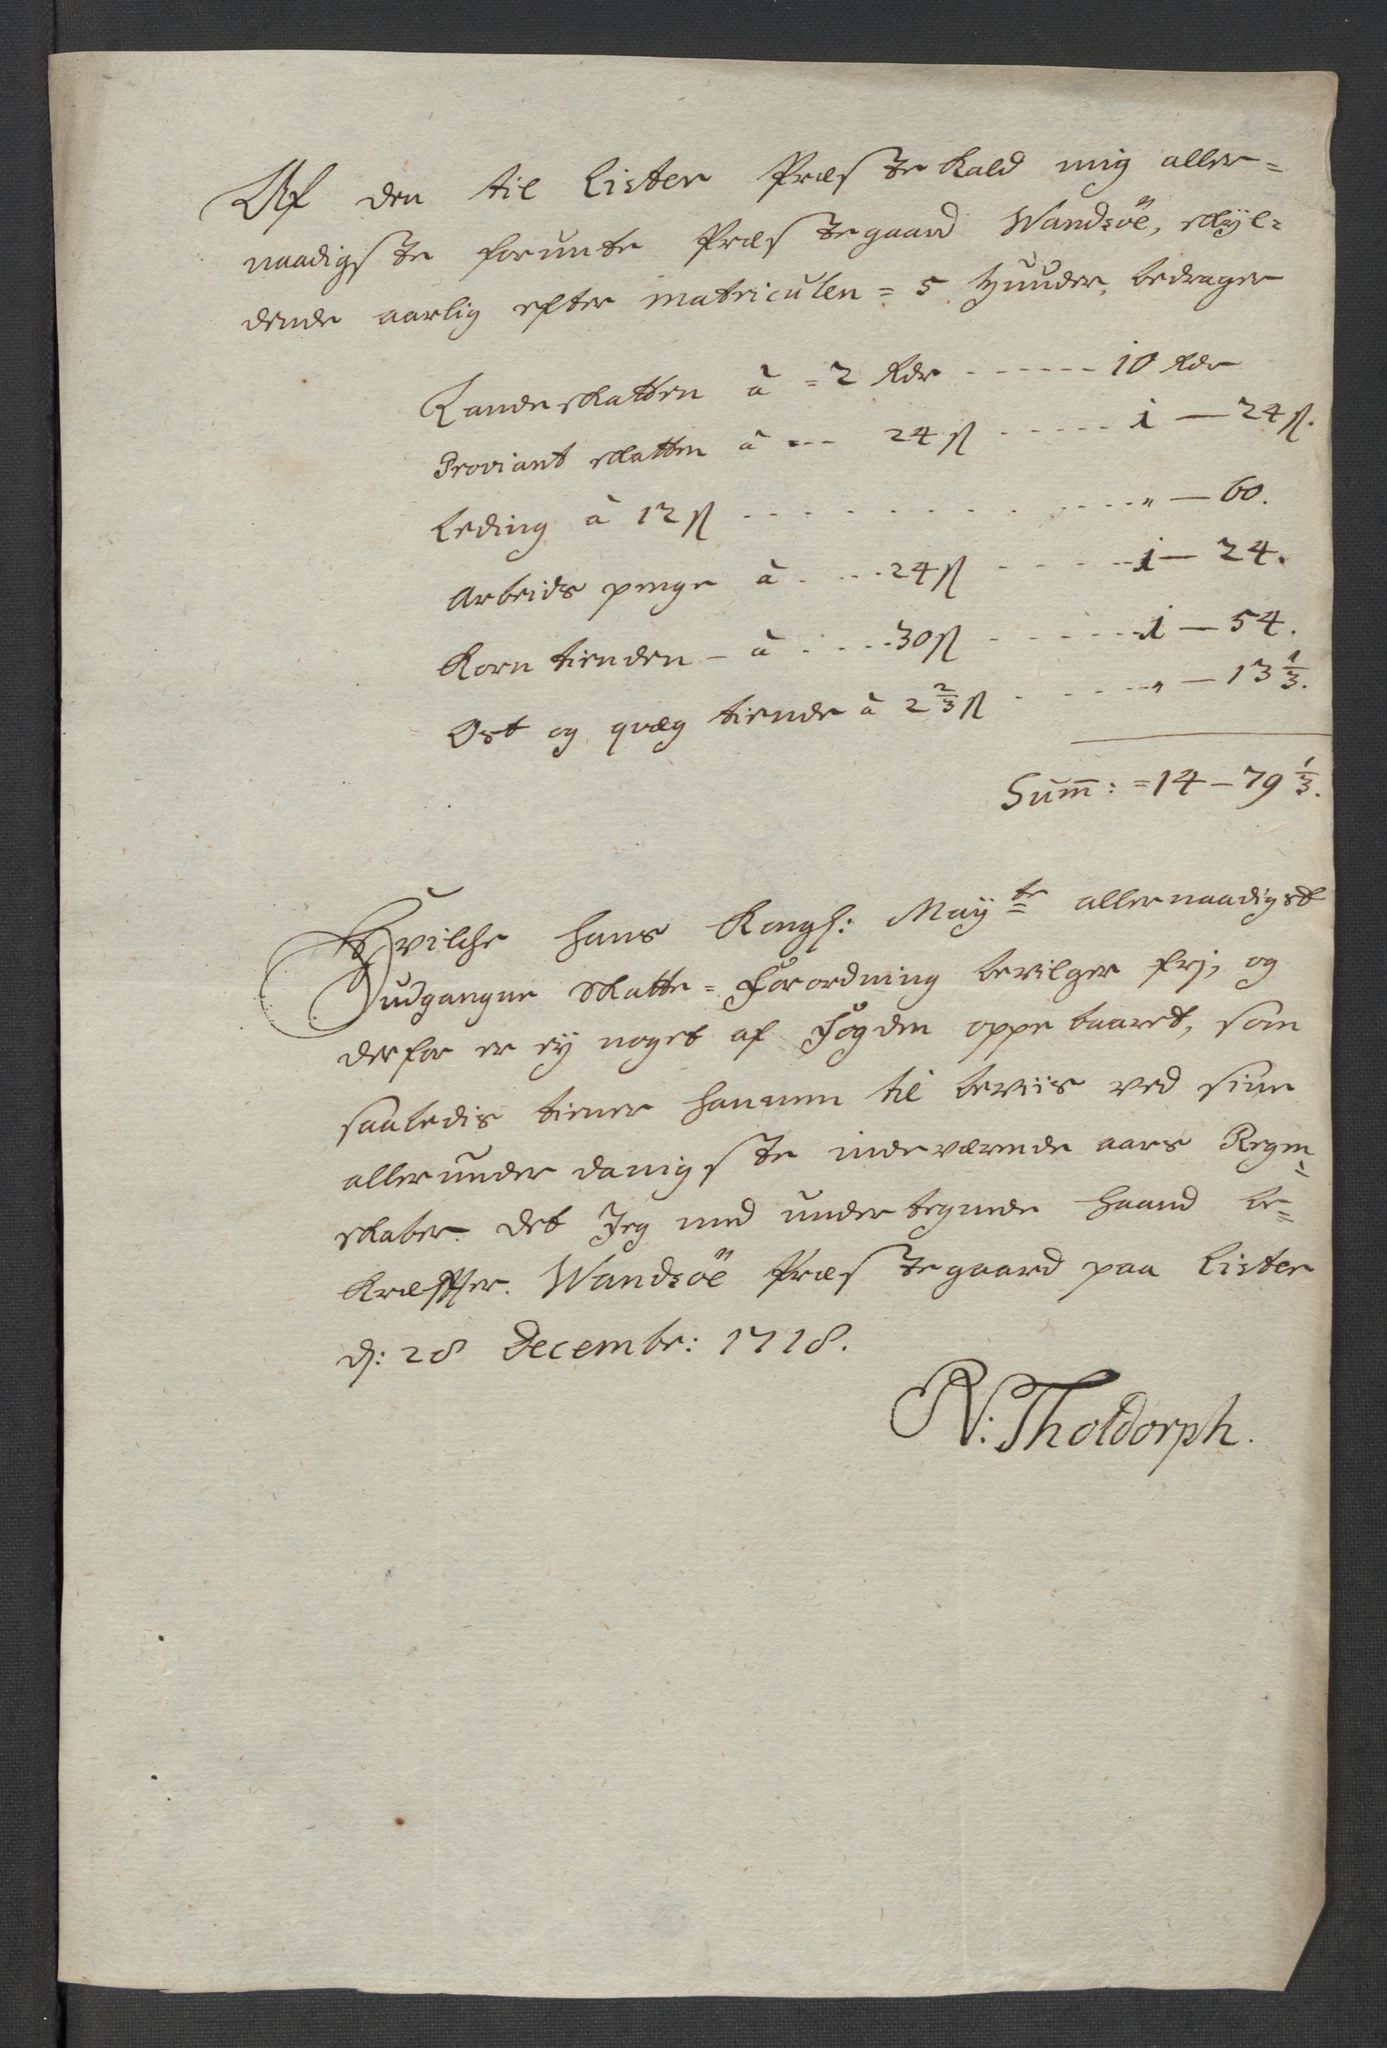 Af den til Lister Præstekald mig aller=
naadigste forunte Præstegaard Wandsöe, skÿl=
dende aarlig efter matriculen = 5 huuder, bedrager
Landskatten à = 2 Rdr - - - - - - 10 Rdr
Proviant skatten à - - - 24 ß - - - - - 1 — 24 ß.
Leding à 12 ß - - - - - - - - - - - - " — 60.
Arbeids penge à - - - 24 ß - - - - - 1 — 24.
Korn tienden - à - - - - 30 ß - - - - - 1 — 54.
Ost og qvæg tiende à 2 2/3 ß - - - - - " — 13 1/3.
Sum̄: = 14 — 79 1/3.
Hvilche hans Kongl: Maÿ<sup>te</sup> allernaadigst
udgangne Skatte = Forordning bevilger frj, og
derfor er eÿ noget af Fogden oppebaaret, som
saaledis tiener hannem til beviis ved sine
allerunderdanigste indeværende aars Regen=
skaber. Det Jeg med undertegnede haand be=
kræffter. Wandsöe Præstegaard paa Lister
d: 28 Decembr: 1718.
N: Tholdorph.